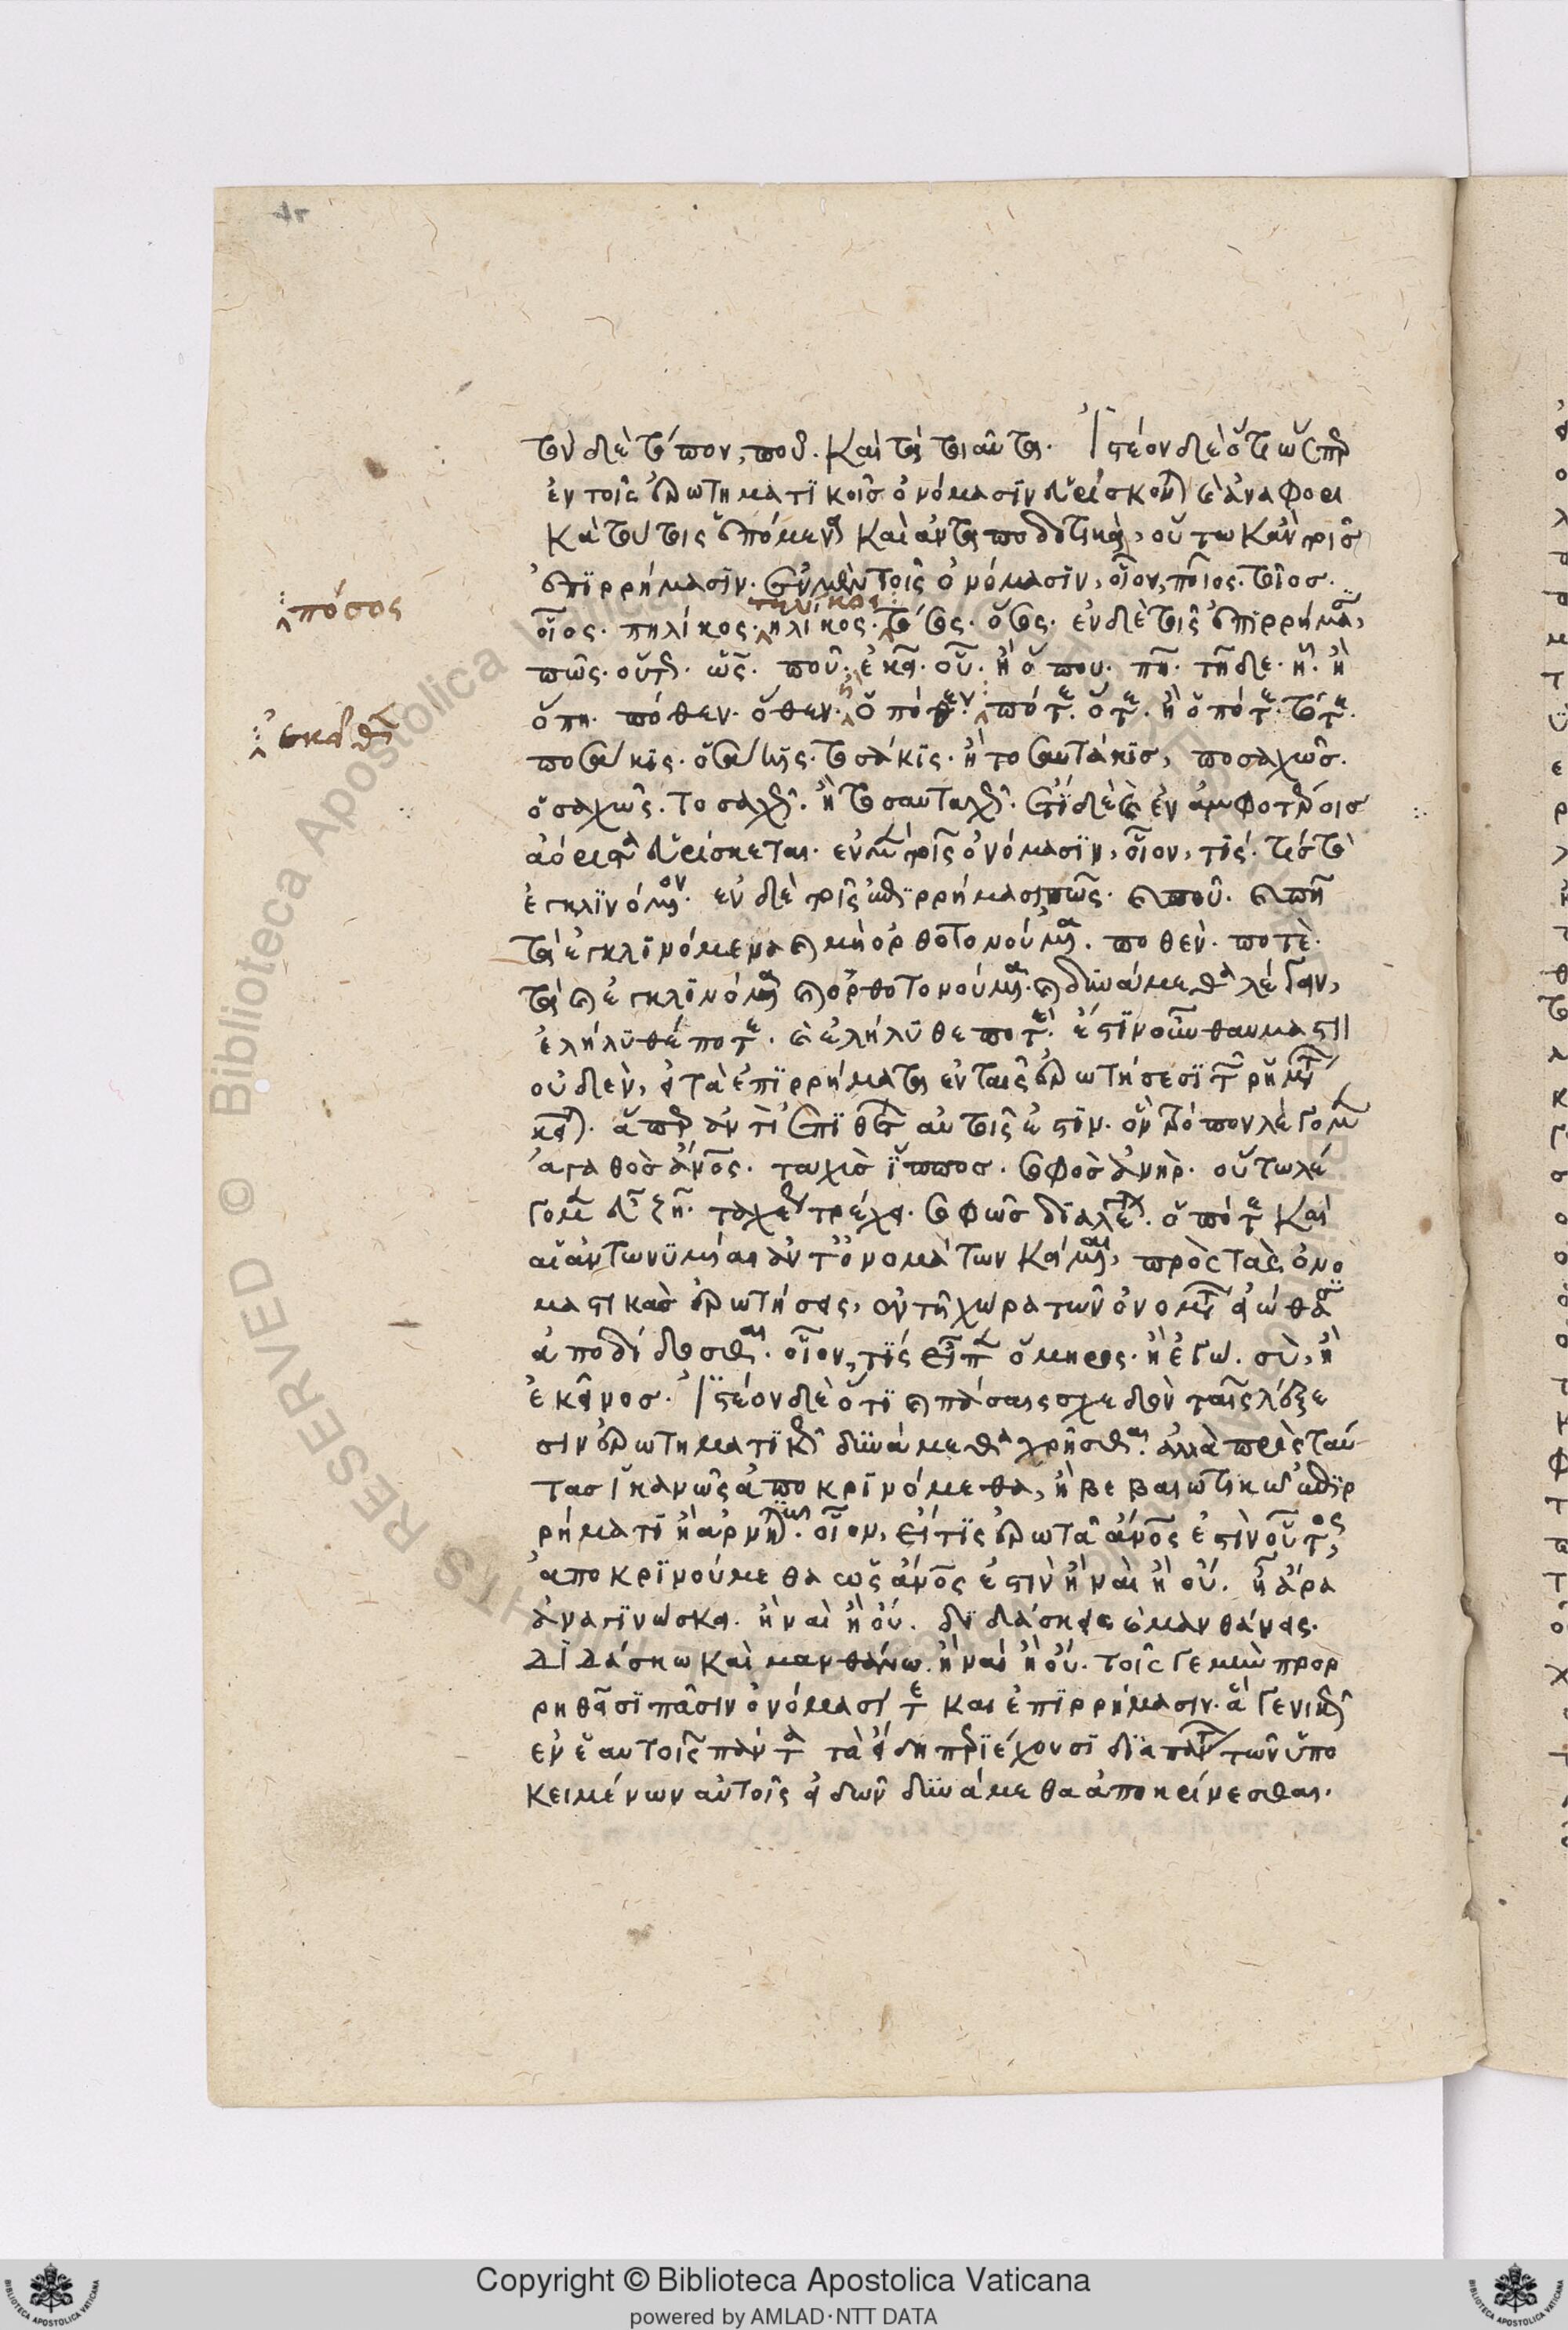 τὸν δὲ τόπον, ποῦ. καὶ τὰ τοιαῦτα. Ἰστέον δὲ ὅτι ὥσπερ
ἐν τοῖς ἐρωτηματικοῖς ὀνόμασιν εὑρίσκονται καὶ ἀναφορι
κὰ τούτοις ἑπόμενα καὶ ἀνταποδοτικὰ, οὕτω κἀν τοῖς
ἐπιρρήμασιν. ἐν μὲν τοῖς ὀνόμασιν, οἷον, ποῖος. τοῖος.
πόσος
τηλίκος
οἷος. πηλίκος. ἡλίκος. τόσος. ὅσος. ἐν δὲ τοῖς ἐπιρρήμασι,
πῶς. οὕτως. ὥς. ποῦ. ἐκεῖ. οὗ. ἢ ὅπου. πῆ. τῆδε. ᾗ. ἢ
ἐκεῖθεν
ὅπη. πόθεν. ὅθεν. ἢ ὁπόθεν. πότε. ὅτε. ἢ ὁπότε. τότε.
ποσάκις. ὁσάκις. τοσάκις. ἢ τοσαυτάκις, ποσαχῶς.
ὁσαχῶς. τοσαχῶς. ἢ τοσαυταχῶς. ἔτι δὲ καὶ ἐν ἀμφοτέροις
ἀόριστα εὑρίσκεται. ἐν μὲν τοῖς ὀνόμασιν, οἷον, τίς. τὸ
ἐγκλινόμενον. ἐν δὲ τοῖς ἐπιρρήμασι πῶς. καὶ ποῦ. καὶ πῆ
τὰ ἐγκλινόμενα καὶ μὴ ὀρθοτονούμενα. ποθὲν. ποτὲ.
τὰ καὶ ἐγκλινόμενα καὶ ὀρθοτονούμενα. καὶ δυνάμεθα λέγειν,
ἐλήλυθέ ποτε. καὶ ἐλήλυθε ποτέ. ἔστιν οὖν θαυμαστὸν
οὐδὲν, εἰ τὰ ἐπιρρήματα ἐν ταῖς ἐρωτήσεσι τῶν ῥημάτων
κεῖται. ἅπερ ἀντὶ ἐπιθέτων αὐτοῖς ἐστιν. ὃν τρόπον λέγομεν
ἀγαθὸς ἄνθρωπος. ταχὺς ἵππος. σοφὸς ἀνὴρ. οὕτω λέ
γομεν εὖ ζῆν. ταχέως τρέχει. σοφῶς διαλέγεται. ὁπότε καὶ
αἱ ἀντωνυμίαι ἀντ' ὀνομάτων κείμεναι, πρὸς τὰς ὀνο
ματικὰς ἐρωτήσεις, ἐν τῇ χώρᾳ τῶν ὀνομάτων εἰώθασιν
ἀποδίδοσθαι. οἷον, τίς εἶπεν ὅμηρος. ἢ ἐγω. σὺ, ἢ
ἐκεῖνος. Ἰστέον δὲ ὅτι ἐν πάσαις σχεδὸν ταῖς λέξε
σιν ἐρωτηματικῶς δυνάμεθα χρῆσθαι. ἀλλὰ πρὸς ταύ
τας ἱκανῶς ἀποκρινόμεθα, ἢ βεβαιωτικῷ ἐπιρ
ρήματι ἢ ἀρνήσεως. οἷον, εἴ τις ἐρωτᾶ ἄνθρωπος ἐστὶν οὗτος,
ἀποκρινούμεθα ὡς ἄνθρωπος ἐστὶν ἢ ναὶ ἢ οὔ. ἦ ἄρα
ἀναγινώσκει. ἢ ναὶ ἢ οὔ. διδάσκεις καὶ μανθάνεις.
Διδάσκω καὶ μανθάνω. ἢ ναὶ ἢ οὔ. τοῖς γε μὲν προρ
ρηθεῖσι πᾶσιν ὀνόμασί τε και ἐπιρρήμασιν. ἃ γενικῶς
ἐν ἑαυτοῖς πάντα τὰ εἴδη περιέχουσι διὰ πάντων τῶν ὑπο
κειμένων αὐτοῖς εἰδῶν δυνάμεθα ἀποκρίνεσθαι.
Copyright © Biblioteca Apostolica Vaticana
powered by AMLAD·NTT DATA